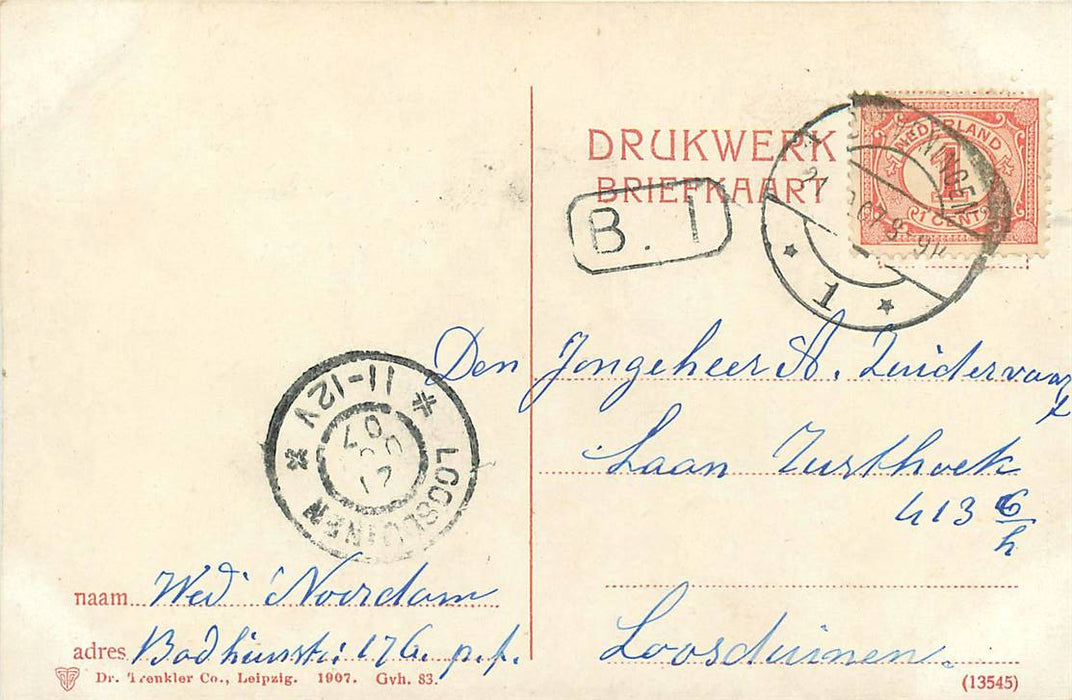 DRUKWERK
BRIEFKAART
NEDERLAND
1
1 CENT
B. I
07 8-9V
1
Den Jongeheer A. Zuidervaart
Laan
413 6/h
Loosduinen.
11-12V
LOOSDUINEN
07
naam Wed Noordam
adres Badhuisstr. 176. p.f.
Dr. Trenkler Co., Leipzig. 1907. Gvh. 83.
(13545)